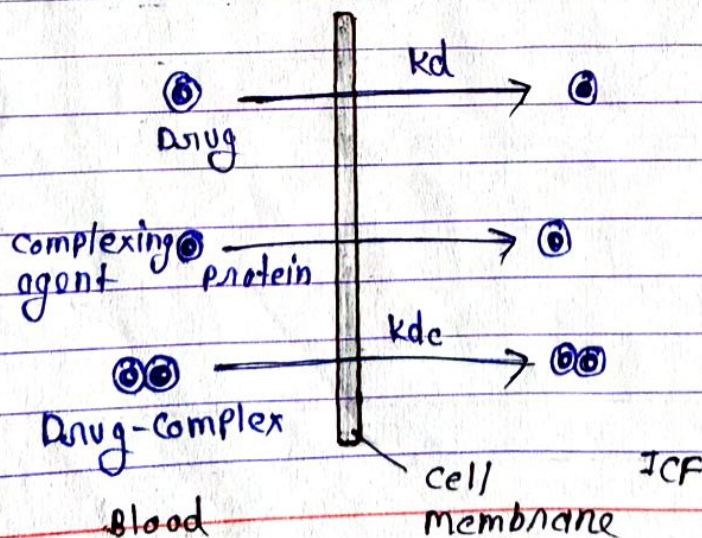 kd
Drug
complexing
agent
protein
kdc
Drug-Complex
Cell
membrane
ICF
Blood